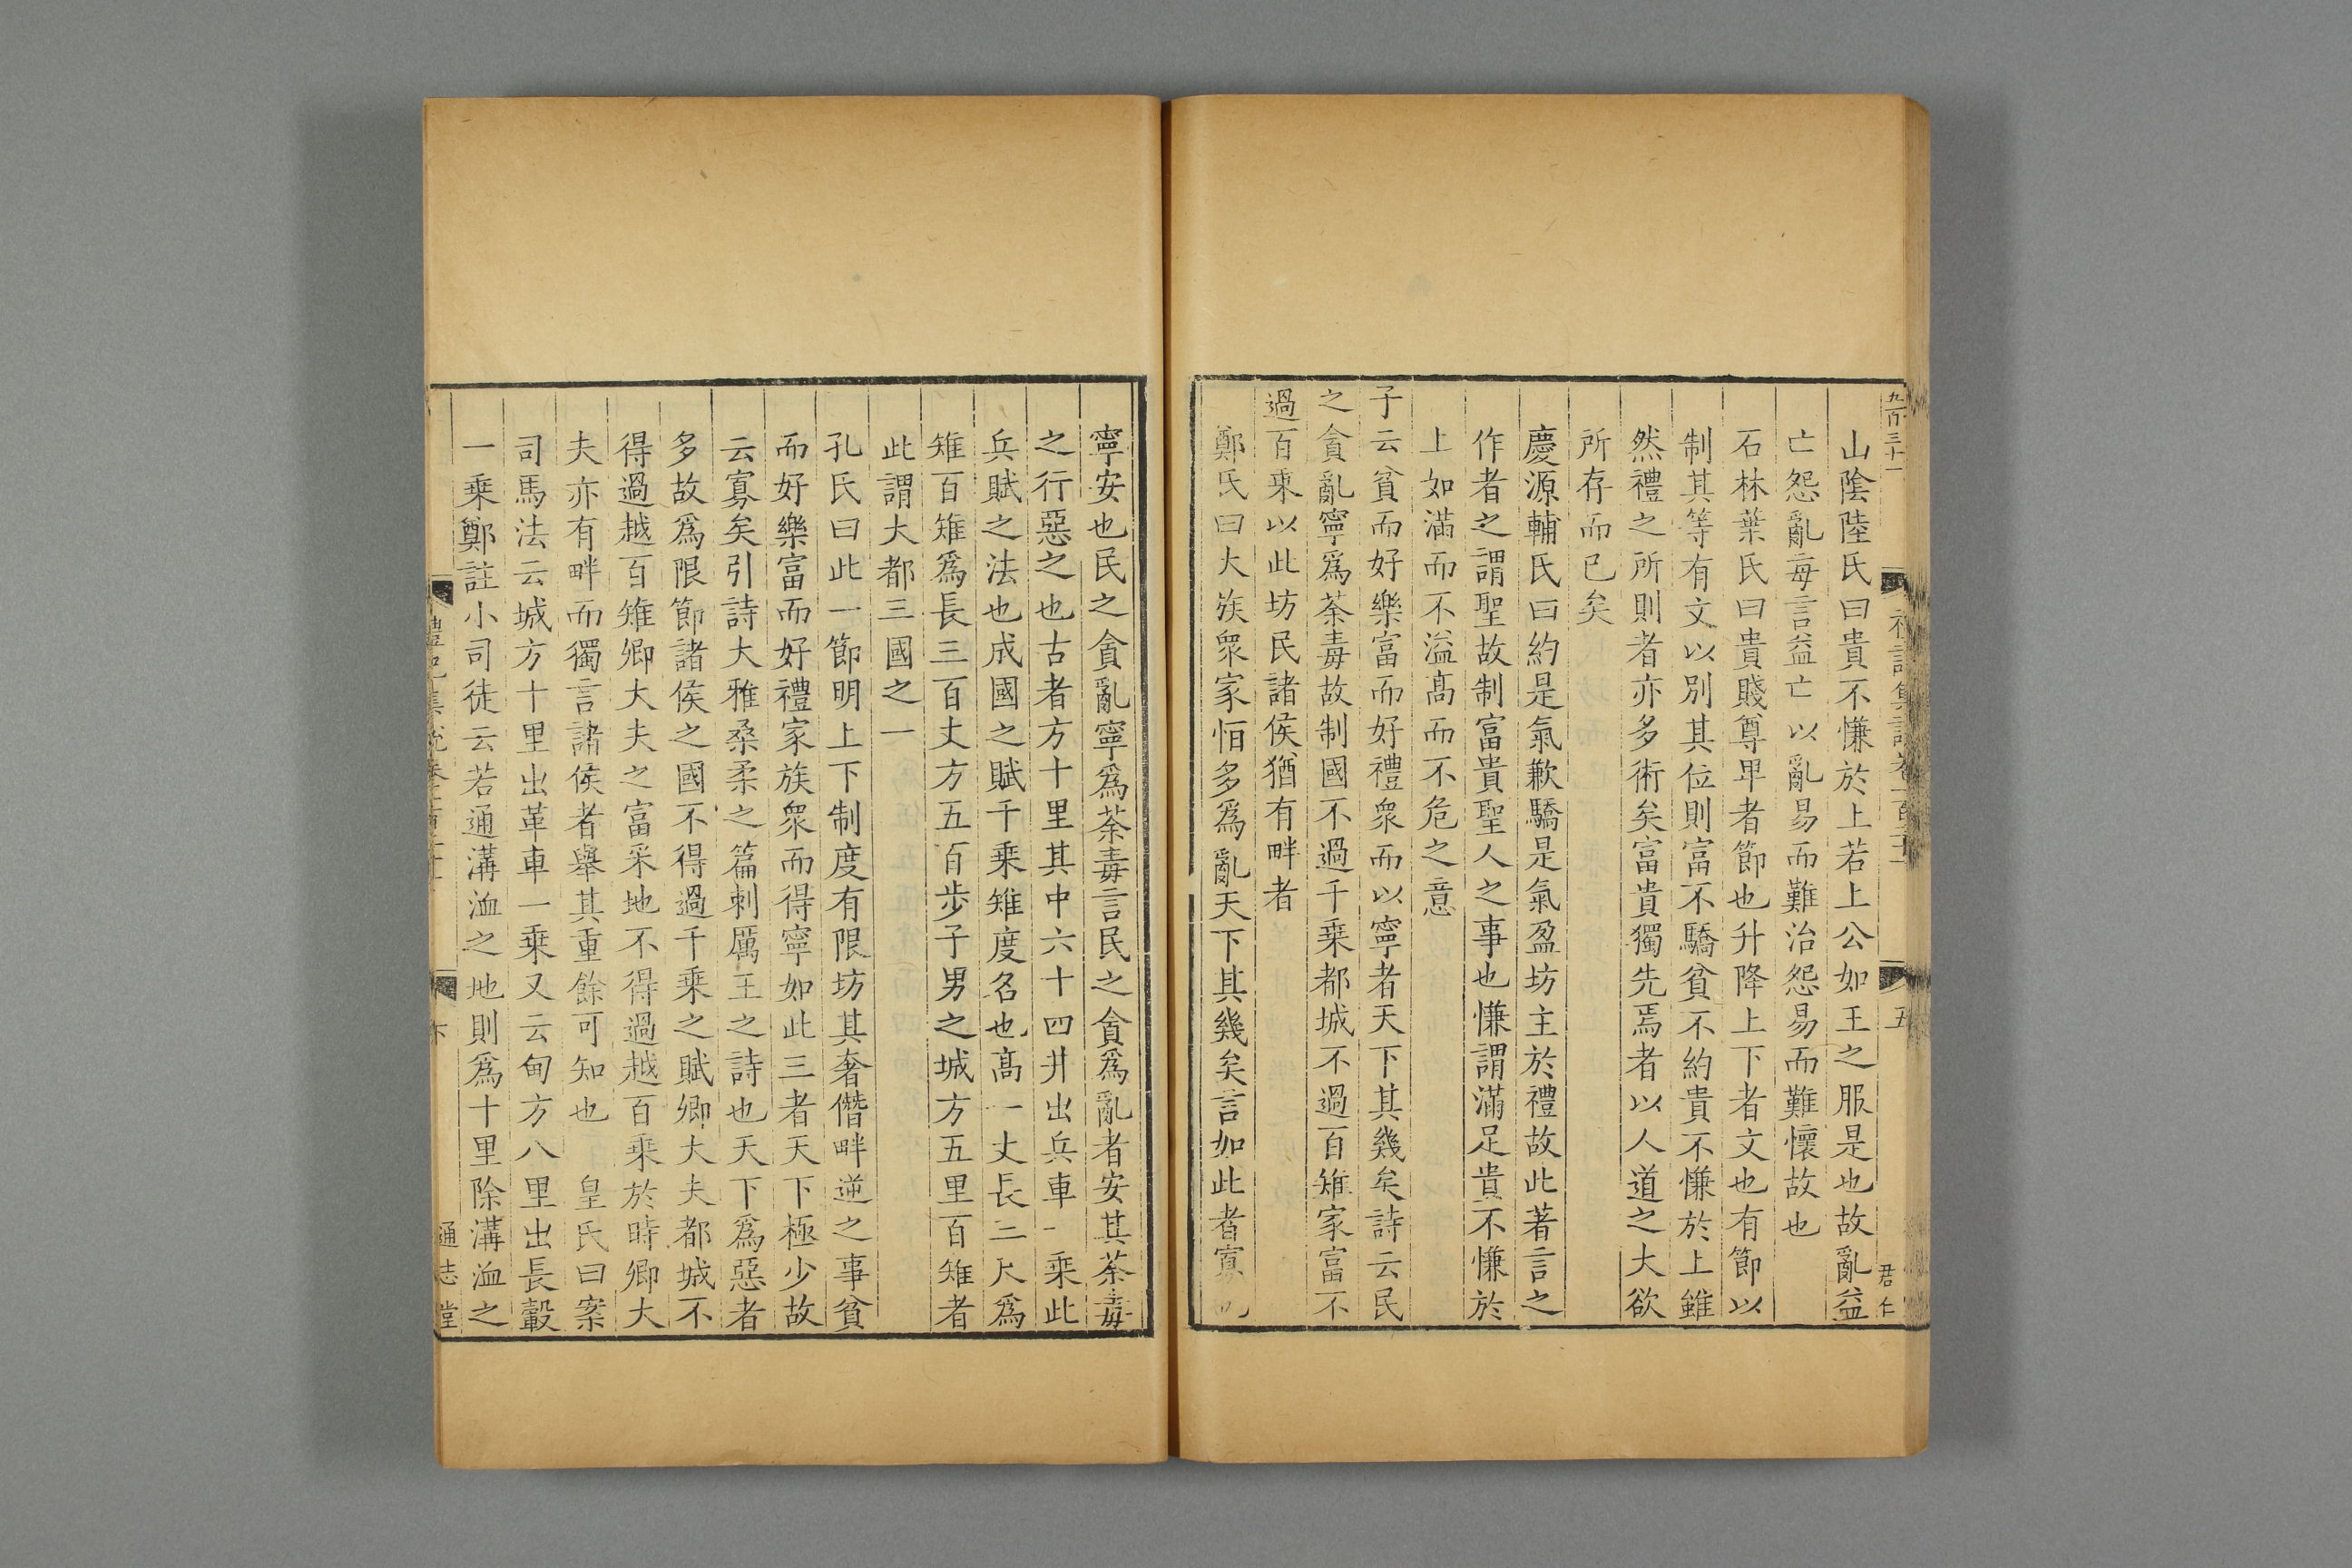 九百三十一
五
君仁
山陰陸氏曰貴不慊於上若上公如王之服是也故亂益
亡怨亂每言益亡以亂易而難治怨易而難懷故也
石林葉氏曰貴賤尊卑者節也升降上下者文也有節以
制其等有文以別其位則富不驕貧不約貴不慊於上雖
然禮之所則者亦多術矣富貴獨先焉者以人道之大欲
所存而已矣
慶源輔氏曰約是氣歉驕是氣盈坊主於禮故此著言之
作者之謂聖故制富貴聖人之事也慊謂滿足貴不慊於
上如滿而不溢髙而不危之意
子云貧而好樂富而好禮衆而以寧者天下其幾矣詩云民
之貪亂寧爲荼毒故制國不過千乗都城不過百雉家富不
過百乗以此坊民諸侯猶有畔者
鄭氏曰大族衆家恒多爲亂天下其幾矣言如此者寡也
寧安也民之貪亂寧爲荼毒言民之貪爲亂者安其荼毒
之行惡之也古者方十里其中六十四井出兵車一乗此
兵賦之法也成國之賦千乗雉度名也髙一丈長三尺爲
雉百雉爲長三百丈方五百步子男之城方五里百雉者
此謂大都三國之一
孔氏曰此一節明上下制度有限坊其奢僭畔逆之事貧
而好樂富而好禮家族衆而得寧如此三者天下極少故
云寡矣引詩大雅桑柔之篇刺厲王之詩也天下爲惡者
多故爲限節諸侯之國不得過千乗之賦卿大夫都城不
得過越百雉卿大夫之富采地不得過越百乗於時卿大
夫亦有畔而獨言諸侯者舉其重餘可知也　皇氏曰案
司馬法云城方十里出革車一乗又云甸方八里出長轂
一乗鄭註小司徒云若通溝洫之地則爲十里除溝洫之
六
通志堂